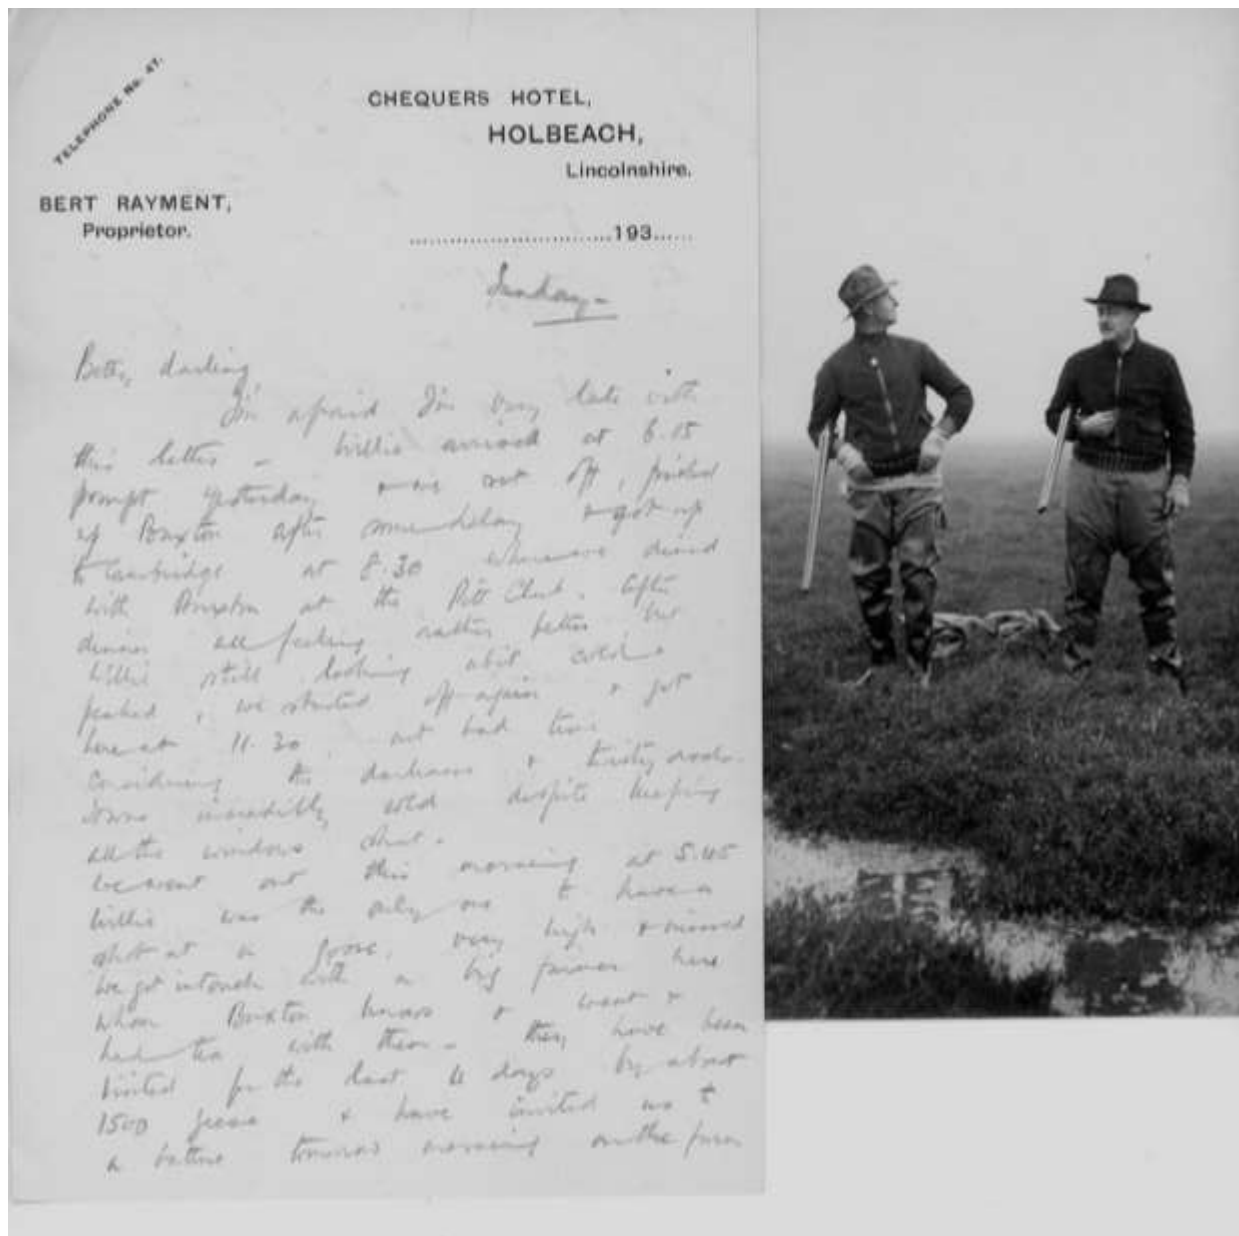 TELEPHONE No. 47.
CHEQUERS HOTEL,
HOLBEACH,
Lincolnshire.
BERT RAYMENT,
Proprietor.
193
Sunday -
darling,
I'm afraid I'm very late with
this letter - Willie arrived at 6.15
prompt yesterday & we set off, picked
up Buxton after some delay & got up
to Cambridge at 8.30 where we dined
with Buxton at the Pitt Club. After
dinner all feeling rather better but
Willie still looking a bit cold &
peaked, we started off again & got
here at 11.30 not bad time
considering the darkness & twisty roads.
incredibly cold despite keeping
all the windows shut.
We went out this morning at 5.45
Willie was the only one to have a
shot at a goose, very high & missed
We got in touch with a big farmer here
whom Buxton knows & went &
had tea with them - they have been
visited for the last 4 days by about
1500 geese & have invited us to
a battue tomorrow morning on the farm